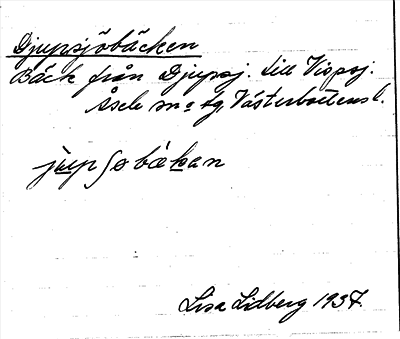 Djupsjöbäcken
Bäck från Djupsj. till Vispsj.
Åsele sn o tg. Västerbottens l.
jupʃøbäkan
Lisa Lidberg 1937.